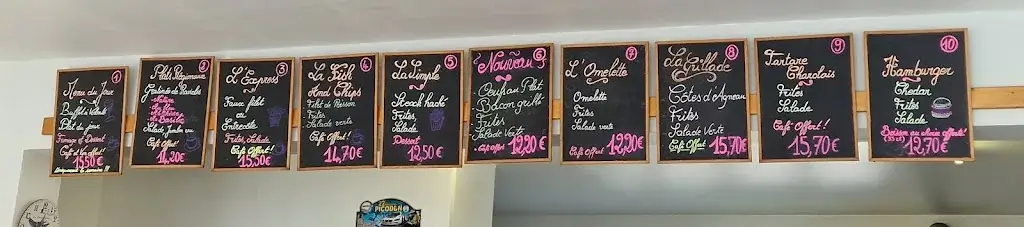 1
Menu du Jour
Buffet à Volonté
Plat du jour
Fromage et Dessert
15,50€
2
Plats Régimeuse
Salade
14,20€
3
L'Express
Faux filet
ou
Entrecôte
Frites, Salade
Café Offert!
15,50€
4
La Fish
And Chips
Filet de Poisson
Frites
Salade
Café Offert!
14,70€
5
La Simple
Steack haché
Frites
Salade
Dessert
12,50€
6
Nouveau
Bacon grillé
Frites
Salade Verte
Café Offert
12,20€
7
L'Omelette
Omelette
Frites
Salade
Café Offert!
12,20€
8
La Grillade
Côtes d'Agneau
Frites
Salade verte
Café Offert
15,70€
9
Tartare
Charolais
Frites
Salade
Café Offert!
15,70€
10
Hamburger
Chedar
Frites
Salade
Boisson au choix offerte!
(33 cl)
12,70€
PICODON